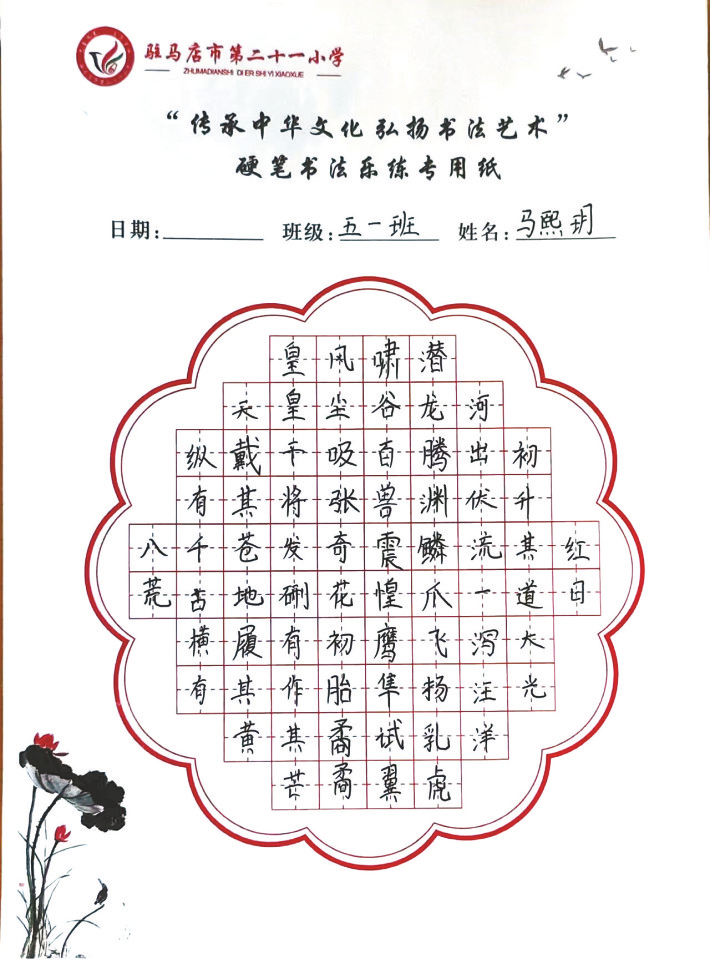 驻马店市第二十一小学
ZHUMADIANSHI DI ER SHI YI XIAOXUE
“传承中华文化 弘扬书法艺术”
硬笔书法乐练专用纸
日期: 班级:五一班 姓名:马熙玥
红日
初升其道大光
河出伏流一泻汪洋
潜龙腾渊鳞爪飞扬乳虎
啸谷百兽震惶鹰隼试翼
风尘吸张奇花初胎矞矞
皇皇干将发硎有作其芒
天戴其苍地履其黄
纵有千古横有
八荒